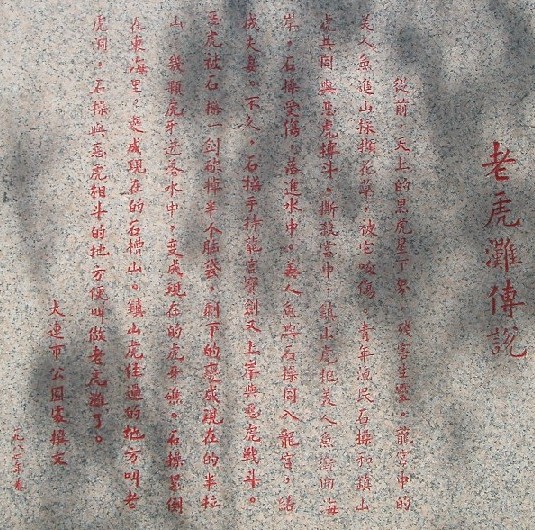 老虎灘傳說
從前,天上的黑虎星下界,殘害生靈。龍宮中的
美人魚進山採摘花草,被它咬傷。青年漁民石槽和鎮山
虎共同與惡虎搏斗,撕殺當中,鎮山虎抱美人魚滾向海
岸,石槽受傷,落進水中。美人魚與石槽同入龍宮,結
成夫妻。不久,石槽手持龍宮寶劍又上岸與惡虎戰斗。
惡虎被石槽一劍砍掉半个腦袋,剩下的變成現在的半拉
山,幾顆虎牙迸落水中,變成現在的虎牙礁。石槽累倒
在東海里,變成現在的石槽山。鎮山虎住過的地方叫老
虎洞,石槽與惡虎相斗的地方便叫做老虎灘了。
大連市公園處撰文
一九八